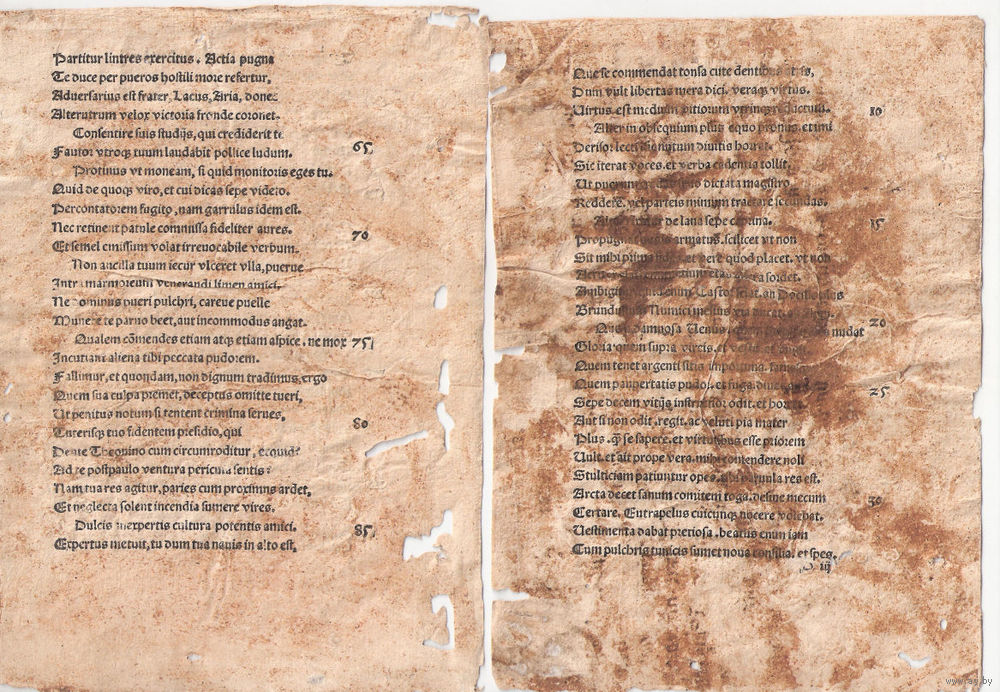 Partitur lintres exercitus. Actia pugna
Te duce per pueros hostili more refertur,
Aduersarius est frater, Lacus, Aria, donec
Alterutrum velox victoria fronde coronet.
Consentire suis studijs, qui crediderit te
Fautor vtroq; tuum laudabit pollice ludum. 65
Protinus vt moneam, si quid monitoris eges tu.
Quid de quoq; viro, et cui dicas sepe videto.
Percontatorem fugito, nam garrulus idem est.
Nec retinent patule commissa fideliter aures. 70
Et semel emissum volat irreuocabile verbum.
Non ancilla tuum iecur vlceret vlla, puerue
Intra marmoreum venerandi limen amici.
Ne dominus pueri pulchri, careue puelle
Munere te paruo beet, aut incommodus angat.
Qualem cōmendes etiam atq; etiam aspice, ne mox 75
Incutiant aliena tibi peccata pudorem.
Fallimur, et quondam, non dignum tradimus, ergo
Quem sua culpa premet, deceptus omitte tueri,
Ut penitus notum si tentent crimina serues,
Tuterisq; tuo fidentem presidio, qui 80
Dente Theonino cum circumroditur, ecquid
Ad te postpaulo ventura pericula sentis?
Nam tua res agitur, paries cum proximus ardet,
Et neglecta solent incendia sumere vires.
Dulcis inexpertis cultura potentis amici. 85
Expertus metuit, tu dum tua nauis in alto est,
Que se commendat tonsa cute dentibus
Dum vult libertas mera dici, veraq; virtus.
Virtus est medium vitiorum vtrinq; reductum. 10
Alter in obsequium plus equo pronus, et imi
Derisor lecti
Sic iterat voces, et verba cadentia tollit,
Ut puerum dictata magistro
Reddere, vel parteis mimum tractare secundas.
de lana sepe caprina. 15
Propugnat armatus, scilicet vt non
Sit mihi prima et vere quod placet, vt non
sordet.
Ambigitur
Brundusium Numici melius via
damnosa Venus, nudat 20
Gloria quem supra vires, et
Quem tenet argenti sitis importuna
Quem paupertatis pudor, et fuga, 25
Sepe decem vitijs instructior odit, et horret
Aut si non odit, regit, ac veluti pia mater
Plus q̄ se sapere, et virtutibus esse priorem
Vult, et ait prope vera, mihi contendere noli
Stulticiam patiuntur opes, tibi paruula res est.
Arcta decet sanum comitem toga, desine mecum 30
Certare. Eutrapelus cuicunq; nocere volebat,
Vestimenta dabat pretiosa, beatus enim iam
Cum pulchris tunicis sumet noua consilia, et spes,
iij
www.ay.by